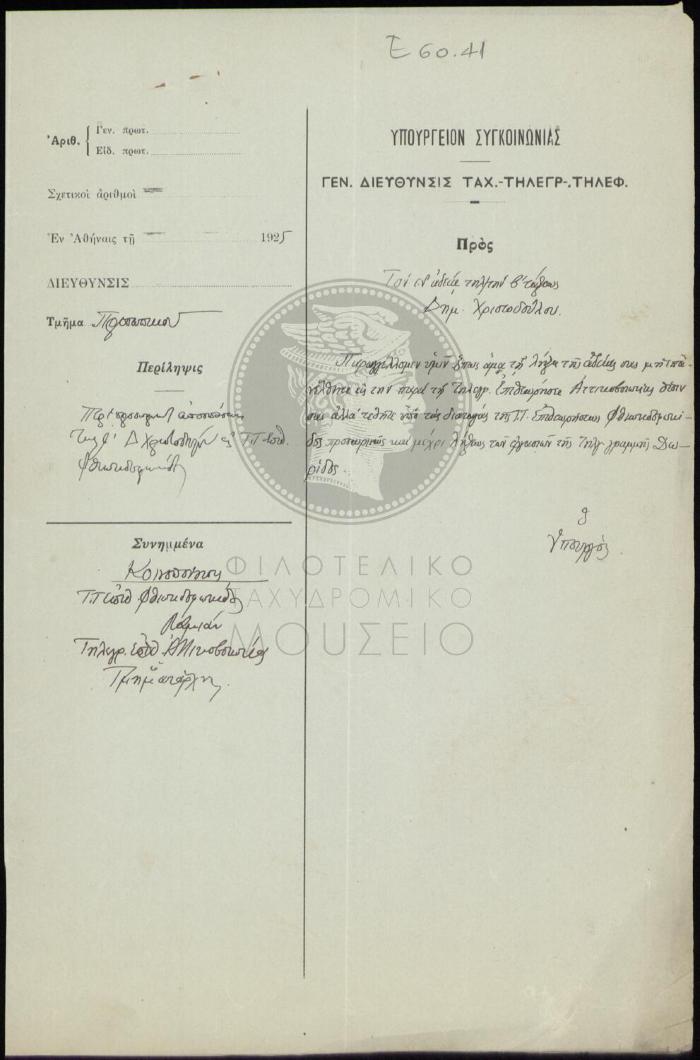 Ε 60.41
Ἀριθ. { Γεν. πρωτ.
Εἰδ. πρωτ.
Σχετικοὶ ἀριθμοὶ
Ἐν Ἀθήναις τῇ 1925
ΔΙΕΥΘΥΝΣΙΣ
Τμῆμα Προσωπικοῦ
Περίληψις
Περὶ προσωρινῆς ἀποσπάσεως
Δ Χριστοδούλου εἰς Τ.Τ.
Φθιωτιδοφωκίδος
Συνημμένα
Κοινοποίησις
Τ.Τ Φθιωτιδοφωκίδος
Λαμίαν
Τηλεγρ. Ἀττικοβοιωτίας
Τμηματάρχην.
ΥΠΟΥΡΓΕΙΟΝ ΣΥΓΚΟΙΝΩΝΙΑΣ
ΓΕΝ. ΔΙΕΥΘΥΝΣΙΣ ΤΑΧ.-ΤΗΛΕΓΡ-.ΤΗΛΕΦ.
Πρὸς
Τὸν ἐν ἀδείᾳ τηλ/τὴν β' τάξεως
Δημ. Χριστοδούλου.
Παραγγέλλομεν ὑμῖν ὅπως ἅμα τῇ λήξει τῆς ἀδείας σας μὴ ἐπα-
νέλθητε εἰς τὴν παρὰ τῇ Τηλεγρ. Ἐπιθεωρήσει Ἀττικοβοιωτίας θέσιν
σας ἀλλὰ τεθῆτε ὑπὸ τὰς διαταγὰς τῆς Τ.Τ. Ἐπιθεωρήσεως Φθιωτιδοφωκί-
δος προσωρινῶς καὶ μέχρι λήξεως τῶν ἐργασιῶν τῆς τηλ. γραμμῆς Δω-
ρίδος.
Ὁ
Ὑπουργός
ΦΙΛΟΤΕΛΙΚΟ
ΤΑΧΥΔΡΟΜΙΚΟ
ΜΟΥΣΕΙΟ